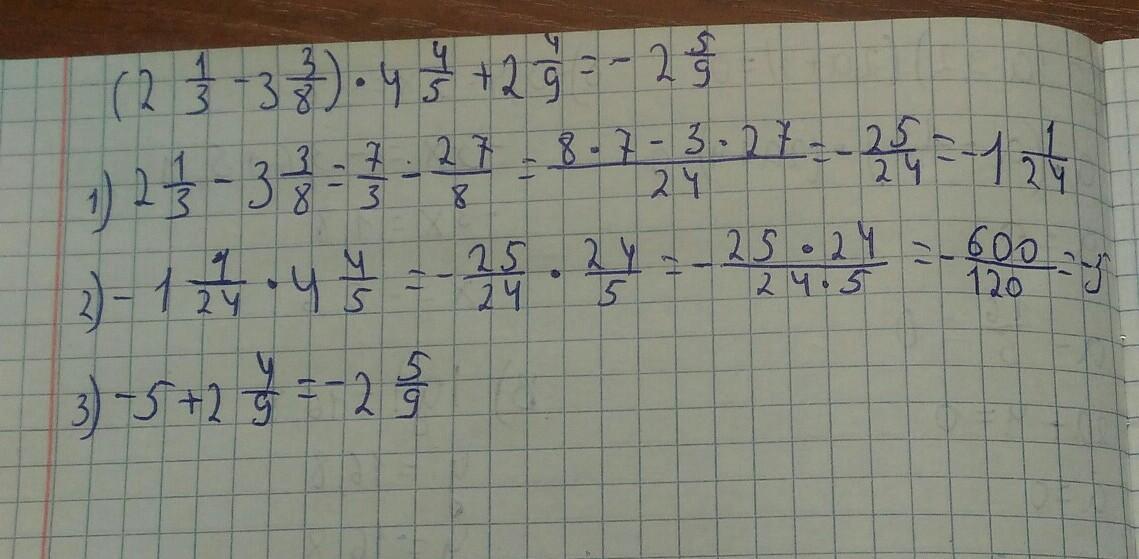 (2 1/3 - 3 3/8) · 4 4/5 + 2 4/9 = - 2 5/9
1) 2 1/3 - 3 3/8 = 7/3 - 27/8 = (8·7 - 3·27)/24 = - 25/24 = -1 1/24
2) - 1 1/24 · 4 4/5 = - 25/24 · 24/5 = - (25·24)/(24·5) = - 600/120 = -5
3) -5 + 2 4/9 = - 2 5/9